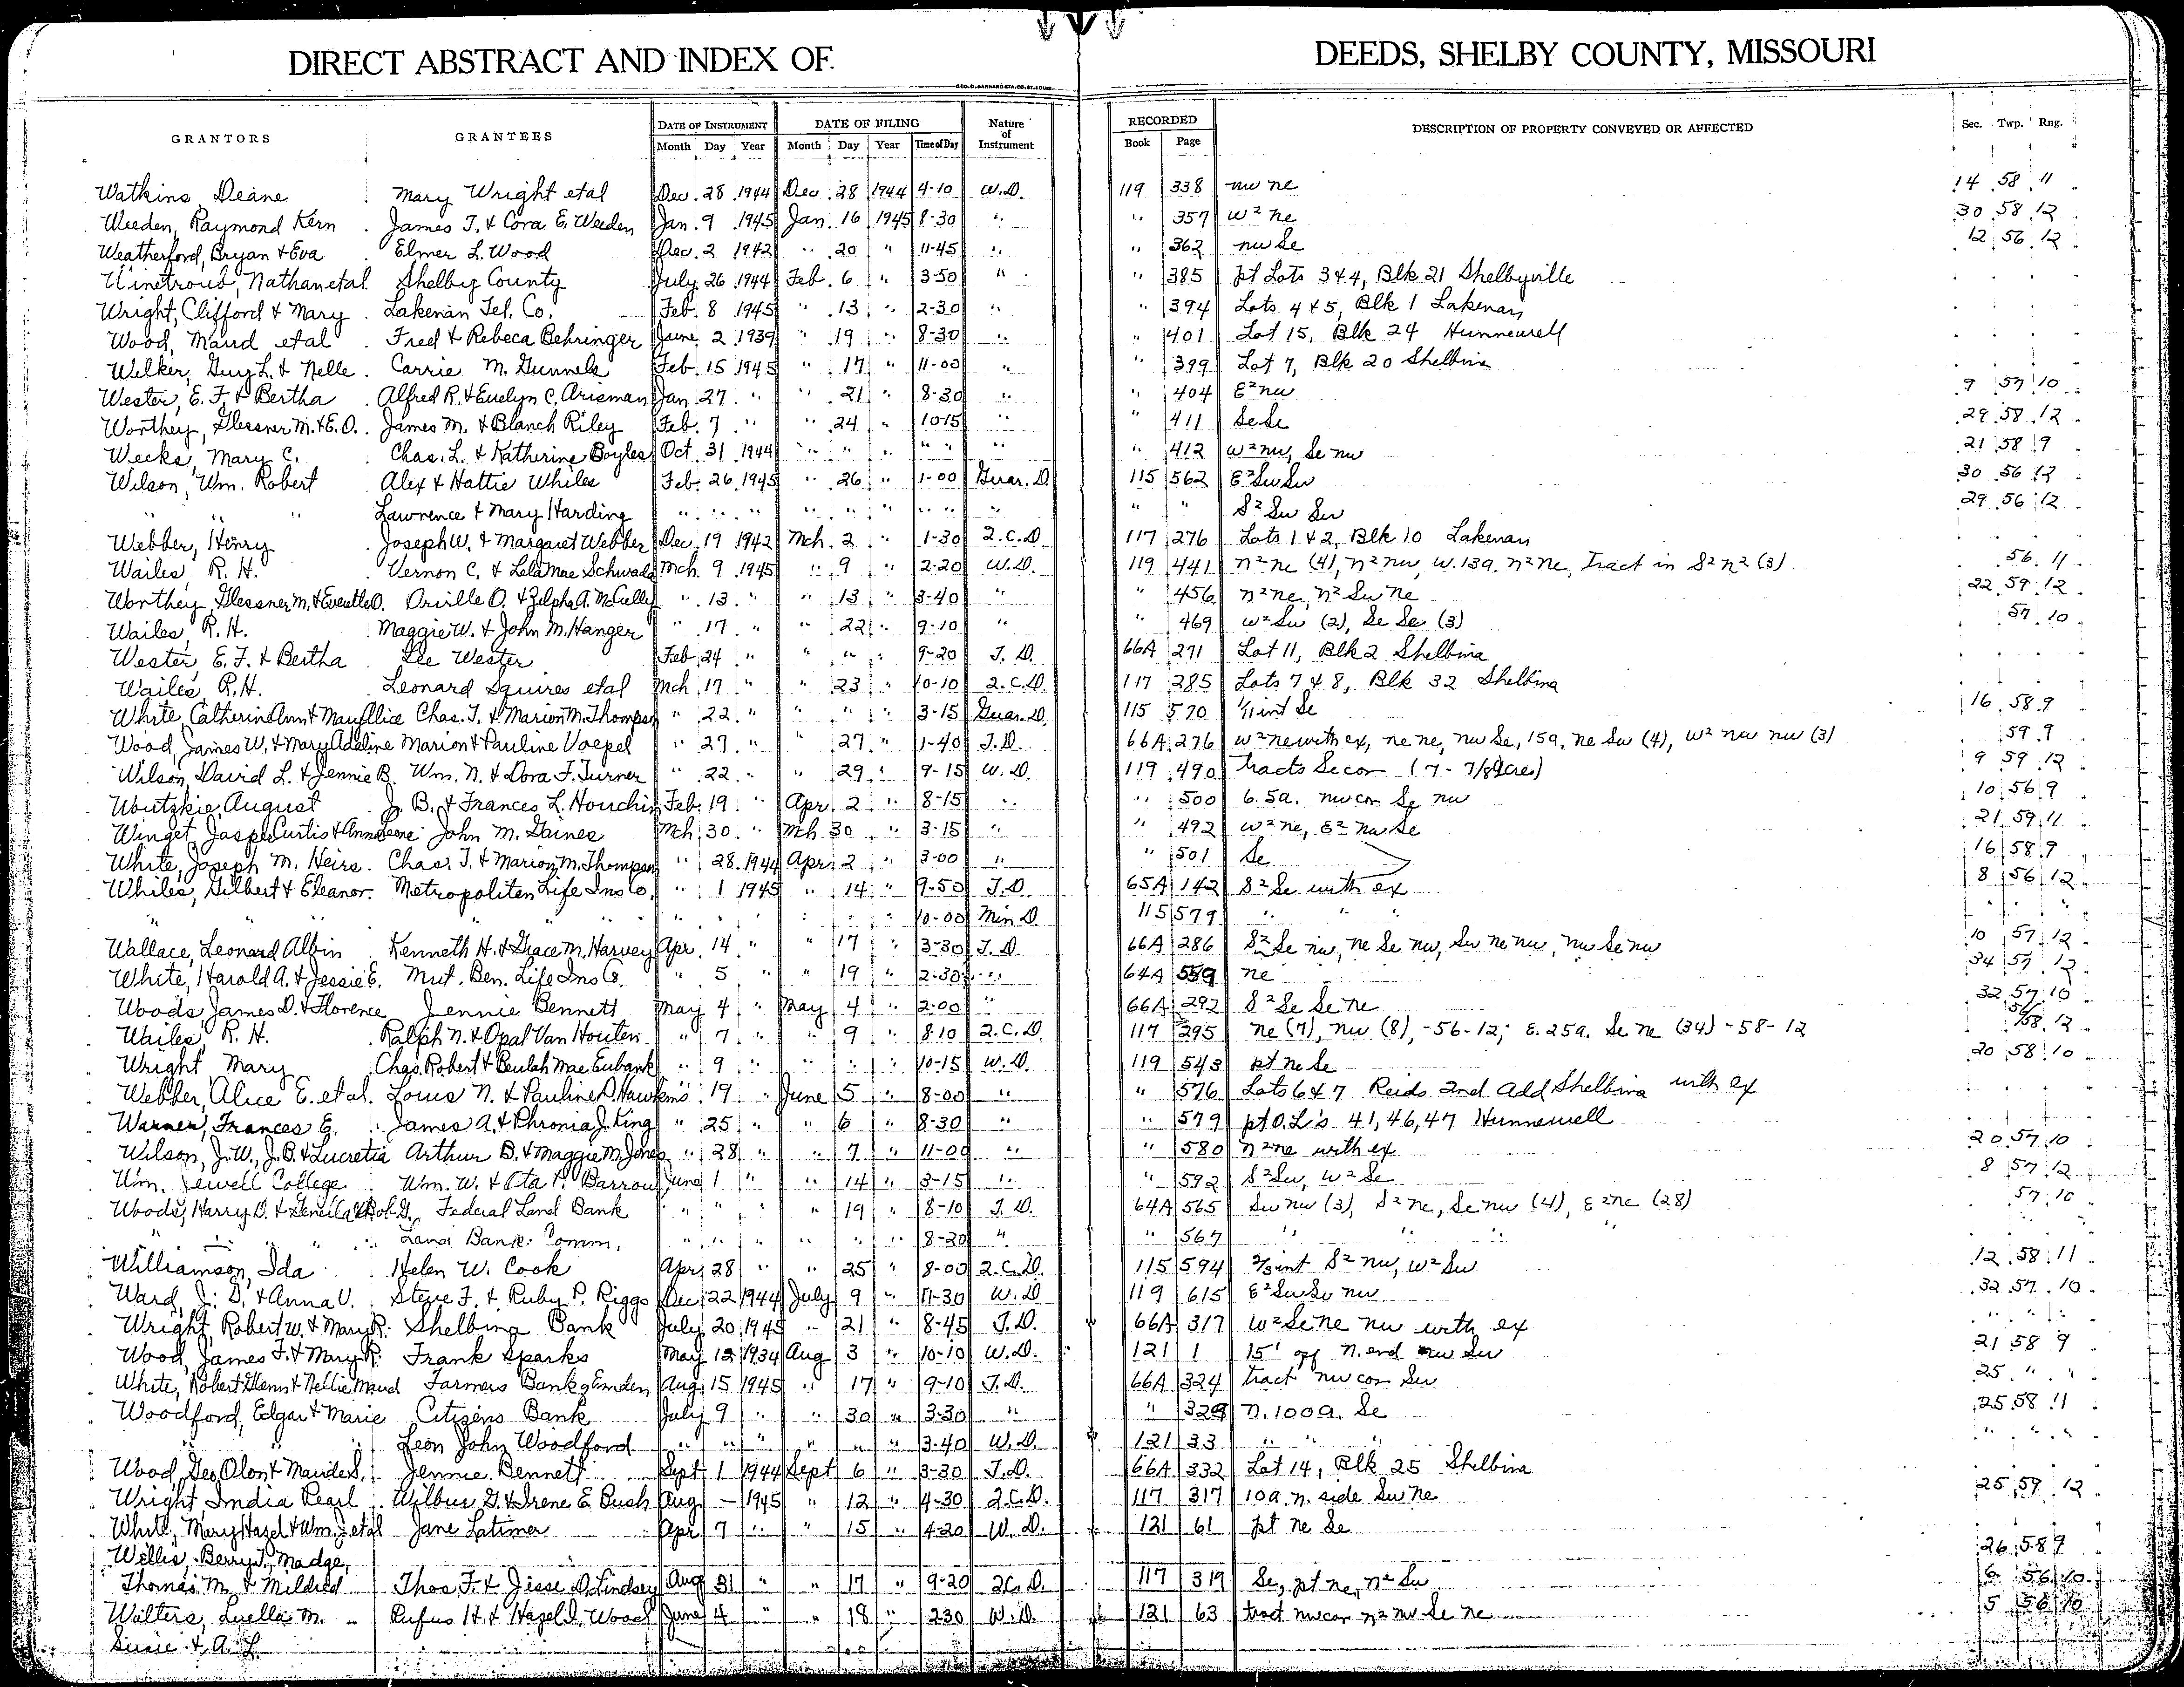 DIRECT ABSTRACT AND INDEX OF DEEDS, SHELBY COUNTY, MISSOURI
GEO. D. BARNARD STA. CO. ST. LOUIS
GRANTORS GRANTEES DATE OF INSTRUMENT DATE OF FILING Nature of Instrument RECORDED DESCRIPTION OF PROPERTY CONVEYED OR AFFECTED Sec. Twp. Rng.
Month Day Year Month Day Year Time of Day Book Page
Watkins, Deane Mary Wright etal Dec 28 1944 Dec 28 1944 4-10 W.D. 119 338 nw ne 14 58 11
Weeden, Raymond Kern James T. & Cora E. Weeden Jan 9 1945 Jan 16 1945 8-30 " " 357 W² ne 30 58 12
Weatherford, Bryan & Eva Elmer L. Wood Dec. 2 1942 " 20 " 11-45 " " 362 nw Se 12 56 12
Winetroub, Nathan etal Shelby County July 26 1944 Feb 6 " 3-50 " " 385 pt Lots 3 & 4, Blk 21 Shelbyville
Wright, Clifford & Mary Lakenan Tel. Co. Feb 8 1945 " 13 " 2-30 " " 394 Lots 4 & 5, Blk 1 Lakenan
Wood, Maud etal Fred & Rebeca Behringer June 2 1939 " 19 " 8-30 " " 401 Lot 15, Blk 24 Hunnewell
Welker, Guy L. & Nelle Carrie M. Gunnels Feb 15 1945 " 17 " 11-00 " " 399 Lot 7, Blk 20 Shelbina
Wester, E. F. & Bertha Alfred R. & Evelyn C. Arisman Jan 27 " " 21 " 8-30 " " 404 E² nw 9 57 10
Worthey, Glessner M. & E.O. James M. & Blanch Riley Feb. 7 " " 24 " 10-15 " " 411 Se Se 29 58 12
Weeks, Mary C. Chas. L. & Katherine Boyles Oct. 31 1944 " " " " " " 412 W² nw, Se nw 21 58 9
Wilson, Wm. Robert Alex & Hattie Whiles Feb. 26 1945 " 26 " 1-00 Guar. D. 115 562 E² Sw Sw 30 56 12
" " " Lawrence & Mary Harding " " " " " " " " " " S² Sw Sw 29 56 12
Webber, Henry Joseph W. & Margaret Webber Dec. 19 1942 Mch 2 " 1-30 2.C.D. 117 276 Lots 1 & 2, Blk 10 Lakenan
Wailes, R. H. Vernon C. & Lela Mae Schwada Mch. 9 1945 " 9 " 2-20 W.D. 119 441 n² ne (4), n² nw, W. 139. n² ne, Tract in S² n² (3) 56 11
Worthey, Glessner M. & Everette O. Orville O. & Zelpha A. McCully " 13 " " 13 " 3-40 " " 456 n² ne, n² Sw ne 22 59 12
Wailes, R. H. Maggie W. & John M. Hanger " 17 " " 22 " 9-10 " " 469 W² Sw (2), Se Se (3) 57 10
Wester, E. F. & Bertha Lee Wester Feb 24 " " " " 9-20 T. D. 66A 271 Lot 11, Blk 2 Shelbina
Wailes, R.H. Leonard Squires etal Mch 17 " " 23 " 10-10 2.C.D. 117 285 Lots 7 & 8, Blk 32 Shelbina
White, Catherine Ann & Mary Alice Chas. T. & Marion M. Thompson " 22 " " " " 3-15 Guar. D. 115 570 1/11 int Se 16 58 9
Wood, James W. & Mary Adeline Marion & Pauline Voepel " 27 " " 27 " 1-40 T. D. 66A 276 W² ne with ex, ne ne, nw Se, 15a, ne Sw (4), W² nw nw (3) 59 9
Wilson, David L. & Jennie B. Wm. N. & Dora F. Turner " 22 " " 29 " 9-15 W. D. 119 490 Tracts Se cor (7-7/8 acres) 9 59 12
August J. B. & Frances L. Houchin Feb. 19 " Apr 2 " 8-15 " " 500 6.5a. nw cor Se nw 10 56 9
Winget, Jasper Curtis & Anna Leone John M. Gaines Mch 30 " Mch 30 " 3-15 " " 492 W² ne, E² nw Se 21 59 11
White, Joseph M. Heirs Chas. T. & Marion M. Thompson " 28 1944 Apr 2 " 3-00 " " 501 Se 16 58 9
Whiles, Gilbert & Eleanor Metropoliten Life Ins Co. " 1 1945 " 14 " 9-50 T.D 65A 142 S² Se with ex 8 56 12
" " " " " " " " " 10-00 Min D. 115 579 " " " " " "
Wallace, Leonard Albin Kenneth H. & Grace M. Harvey Apr. 14 " " 17 " 3-30 T. D. 66A 286 S² Se nw, ne Se nw, Sw ne nw, nw Se nw 10 57 12
White, Harold A. & Jessie E. Mut. Ben. Life Ins Co. " 5 " " 19 " 2-30 " 64A 559 ne 34 57 12
Woods James D. & Florence Jennie Bennett May 4 " May 4 " 2-00 " 66A 292 S² Se Se ne 32 57 10
Wailes, R. H. Ralph N. & Opal Van Houten " 7 " " 9 " 8-10 2.C.D. 117 295 ne (7), nw (8), -56-12; E. 25a. Se ne (34) -58-12 56 58 12
Wright Mary Chas. Robert & Beulah Mae Eubank " 9 " " " " 10-15 W.D. 119 543 pt ne Se 20 58 10
Webber, Alice E. et al. Louis N. & Pauline D. Hawkins " 19 " June 5 " 8-00 " " 576 Lots 6 & 7 Reids 2nd Add Shelbina with ex
Warner, Frances E. James A. & Phronia J. King " 25 " " 6 " 8-30 " " 579 pt O.L's 41, 46, 47 Hunnewell
Wilson, J.W., J.B. & Lucretia Arthur B. & Maggie M. Jones " 28 " " 7 " 11-00 " " 580 n² ne with ex 20 57 10
Wm. Jewell College Wm. W. & Barrow June 1 " " 14 " 3-15 " " 592 S² Sw, W² Se 8 57 12
Woods, Harry D. & Federal Land Bank " " " " 19 " 8-10 T. D. 64A 565 Sw nw (3), S² ne, Se nw (4), E² ne (28) 57 10
" " " Land Bank Comm. " " " " " " 8-20 " " 567 " " "
Williamson, Ida Helen W. Cook Apr. 28 " " 25 " 8-00 2.C.D. 115 594 ⅔ int S² nw, W² Sw 12 58 11
Ward, J. D. & Anna V. Steve F. & Ruby P. Riggs Dec 22 1944 July 9 " 11-30 W. D 119 615 E² Sw Sw nw 32 57 10
Wright, Robert W. & Mary R. Shelbina Bank July 20 1945 " 21 " 8-45 T.D. 66A 317 W² Se ne nw with ex " " "
Wood, James F. & Mary R. Frank Sparks May 12 1934 Aug 3 " 10-10 W.D. 121 1 15' off N. end nw Sw 21 58 9
White, Robert Glenn & Nellie Maud Farmers Bank of Emden Aug. 15 1945 " 17 " 9-10 T.D. 66A 324 tract nw cor Sw 25 " "
Woodford, Edgar & Marie Citizens Bank July 9 " " 30 " 3-30 " " 329 N. 100 a. Se 25 58 11
" " " Leon John Woodford " " " " " " 3-40 W. D. 121 33 " " " " " "
Wood, Geo. Olon & Maude S. Jennie Bennett Sept 1 1944 Sept 6 " 3-30 T.D. 66A 332 Lot 14, Blk 25 Shelbina
Wright India Pearl Wilbur G. & Irene E. Bush Aug — 1945 " 12 " 4-30 2.C.D. 117 317 10 a. n. side Sw ne 25 59 12
White, Mary Hazel & Wm. J. etal Jane Latimer Apr 7 " " 15 " 4-20 W. D. 121 61 pt ne Se 26 58 9
Willis, Berry T., Madge,
Thomas M. & Mildred Thos. F. & Jesse D. Lindsey Aug 31 " " 17 " 9-20 2C. D. 117 319 Se, pt ne, n² Sw 6 56 10
Walters, Luella M. Rufus H. & Hazel I. Wood June 4 " " 18 " 2-30 W.D. 121 63 tract nw cor n² nw Se ne 5 56 10
Susie & A. L.